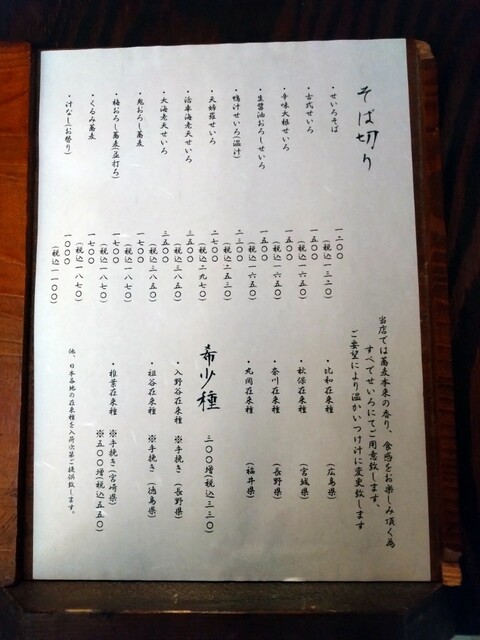 そば切り
・せいろそば 一二〇〇
(税込一三二〇)
・古式せいろ 一五〇〇
(税込一六五〇)
・辛味大根せいろ 一五〇〇
(税込一六五〇)
・生醤油おろしせいろ 一五〇〇
(税込一六五〇)
・鴨汁せいろ(温汁) 二三〇〇
(税込二五三〇)
・天婦羅せいろ 二七〇〇
(税込二九七〇)
・活車海老天せいろ 三五〇〇
(税込三八五〇)
・大海老天せいろ 三五〇〇
(税込三八五〇)
・鬼おろし蕎麦 一七〇〇
(税込一八七〇)
・梅おろし蕎麦 一七〇〇
(税込一八七〇)
・くるみ蕎麦 一七〇〇
(税込一八七〇)
・汁なし(お替り) 一〇〇〇
(税込一一〇〇)
当店では蕎麦本来の香り、食感をお楽しみ頂く為
すべてせいろにてご用意致します、
ご要望により温かいつけ汁に変更致します
・比和在来種 (広島県)
・秋保在来種 (宮城県)
・奈川在来種 (長野県)
・丸岡在来種 (福井県)
希少種 三〇〇増(税込三三〇)
・入野谷在来種 ※手挽き(長野県)
・祖谷在来種 ※手挽き(徳島県)
・椎葉在来種 ※手挽き(宮崎県)
※五〇〇増(税込五五〇)
他、日本各地の在来種を入荷次第ご提供致します。